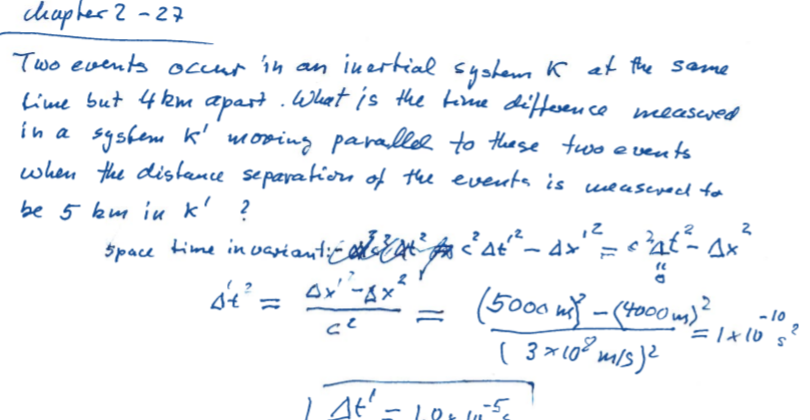 chapter 2 - 27
Two events occur in an inertial system K at the same
time but 4 km apart. What is the time difference measured
in a system K' moving parallel to these two events
when the distance separation of the events is measured to
be 5 km in K' ?
space time invariant: c²Δt'² - Δx'² = c²Δt² - Δx²
"
0
Δt'² = (Δx'² - Δx²) / c² = ((5000 m)² - (4000 m)²) / (3×10⁸ m/s)² = 1×10⁻¹⁰ s²
Δt' = 1.0×10⁻⁵ s